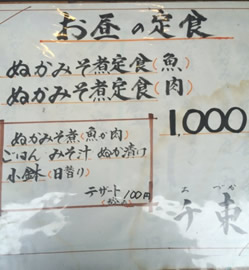 お昼の定食
ぬかみそ煮定食(魚)
ぬかみそ煮定食(肉)
1,000
ぬかみそ煮(魚か肉)
ごはん みそ汁 ぬか漬け
小鉢(日替り)
デザート 100円
千東